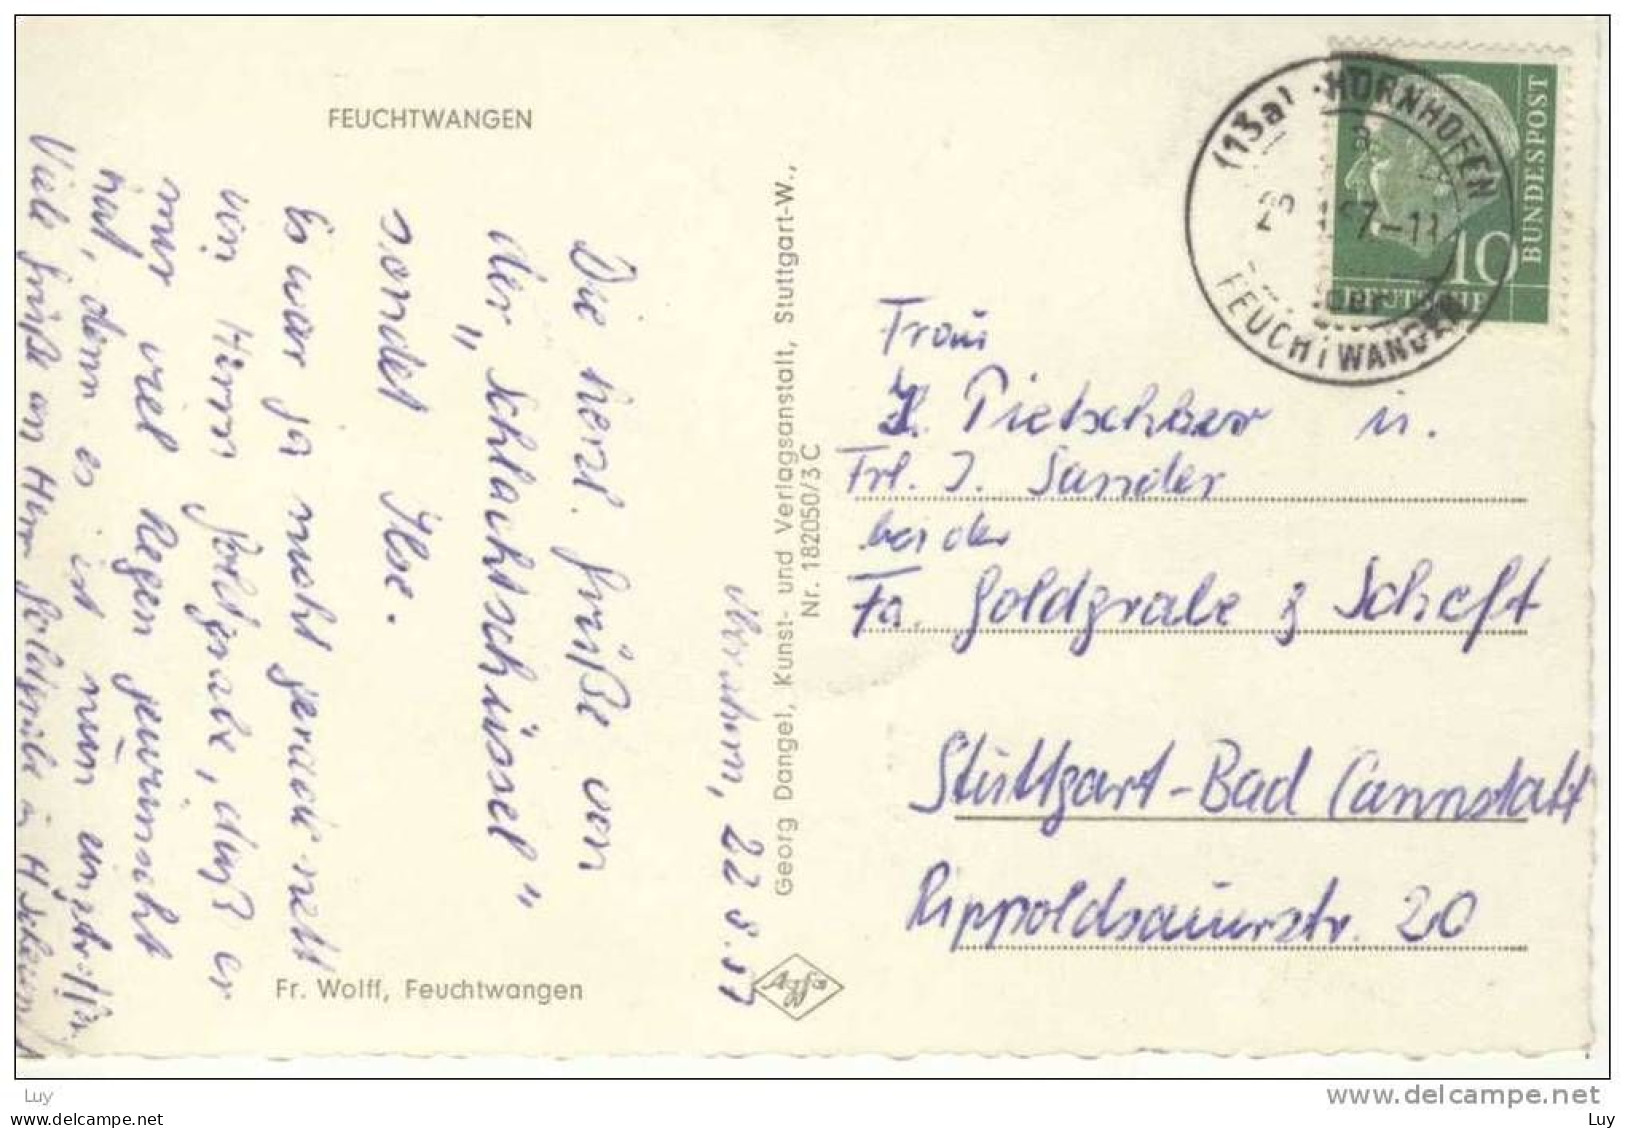 FEUCHTWANGEN
22.8.57
Die herzl. Grüße von
der „Schlachtschüssel“
sendet Ilse.
Es war ja nicht gerade nett
von Herrn Goldgrabe, daß er
nur viel Regen gewünscht
hat, denn es ist nun
Viele Grüße an Herrn
Fr. Wolff, Feuchtwangen
Georg Dangel, Kunst- und Verlagsanstalt, Stuttgart-W.,
Nr. 182050/3 C
Agfa
(13a) HORNHOFEN
FEUCHTWANGEN
DEUTSCHE
BUNDESPOST
10
Frau
Pietschker u.
Frl. J. Sander
bei der
Fa. Goldgrabe & Scheft
Stuttgart-Bad Cannstatt
Rippoldsauerstr. 20
delcampe.net
Luy
Luy
Luy